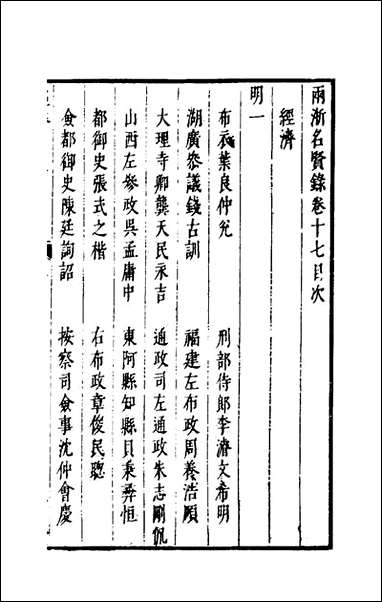 兩浙名賢錄卷十七目次
經濟
明一
布衣葉良仲兊
刑部侍郎李濬文希明
湖廣叅議錢古訓
福建左布政周養浩頤
大理寺卿龔天民永吉
通政司左通政朱志剛侃
山西左叅政吳孟庸中
東阿縣知縣貝秉彛恒
都御史張式之楷
右布政章俊民聰
僉都御史陳廷詢詔
按察司僉事沈仲會慶